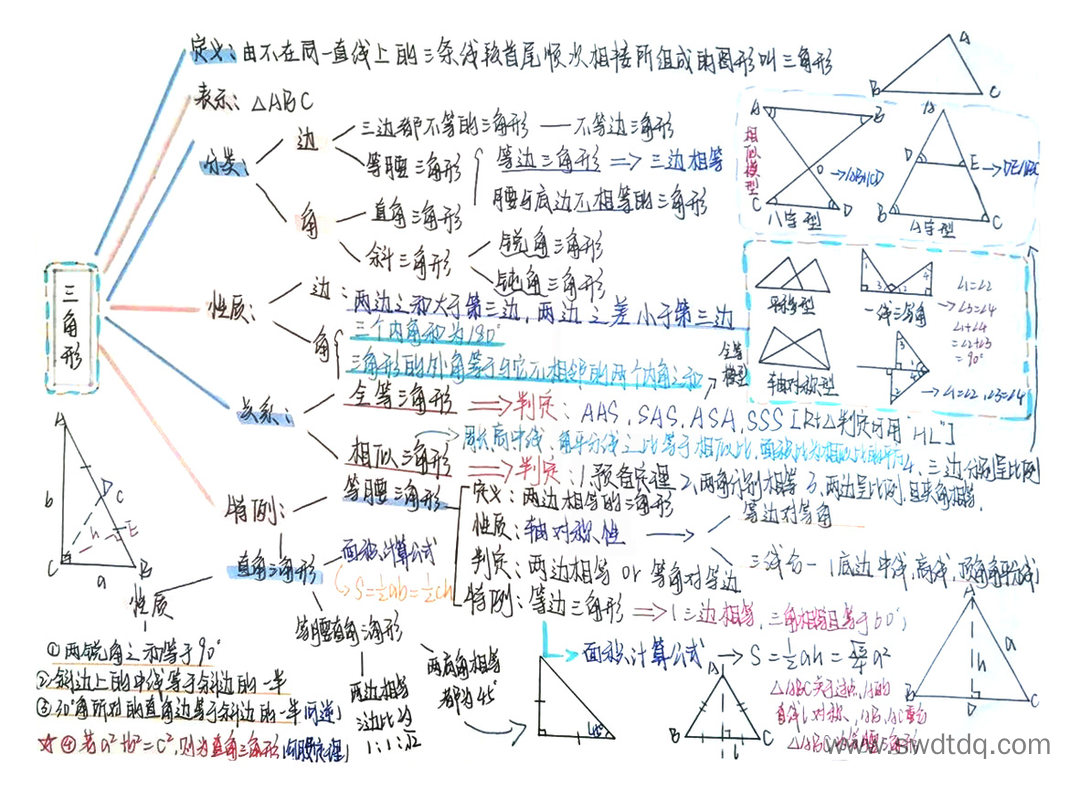 定义：由不在同一直线上的三条线段首尾顺次相接所组成的图形叫三角形
表示：△ABC
分类：
边
三边都不等的三角形 — 不等边三角形
等腰三角形
等边三角形 => 三边相等
腰与底边不相等的三角形
角
直角三角形
斜三角形
锐角三角形
钝角三角形
三角形
性质：
边：两边之和大于第三边，两边之差小于第三边
角
三个内角和为180°
三角形的外角等于与它不相邻的两个内角之和
关系：
全等三角形 => 判定：AAS、SAS、ASA、SSS [Rt△判定可用"HL"]
周长、高、中线、角平分线之比等于相似比，面积比为相似比的平方
相似三角形 => 判定：1.预备定理 2、两角分别相等 3、两边呈比例且夹角相等、
4、三边分别呈比例
特例：
等腰三角形
定义：两边相等的三角形
性质：轴对称性
等边对等角
三线合一（底边中线，高线，顶角角平分线）
判定：两边相等 or 等角对等边
特例：等边三角形
三边相等，三角相等且等于60°；
面积计算公式 → S=½ah=
a²
直角三角形
面积计算公式
S=½ab=½ch
性质
①两锐角之和等于90°
②斜边上的中线等于斜边的一半
③30°角所对的直角边等于斜边的一半(可逆)
☆④若a²+b²=c²，则为直角三角形(勾股定理)
等腰直角三角形
两边相等
三边比为
1:1:√2
两底角相等
都为45°
45°
相似模型
A
B
O
C
D
→AB∥CD
八字型
A
D
E
→DE∥BC
B
C
A字型
全等模型
平移型
1
3
2
4
一线三等角
∠1=∠2
→∠3=∠4
∠1+∠4
=∠2+∠3
=90°
轴对称型
3
1
4
2
→∠1=∠2，∠3=∠4
A
B
C
A
b
D
C
E
h
C
a
B
A
B
C
l
△ABC关于过点A的
直线l对称，AB、AC重合
△ABC为等腰三角形
A
a
h
B
D
C
www.swdtdq.com